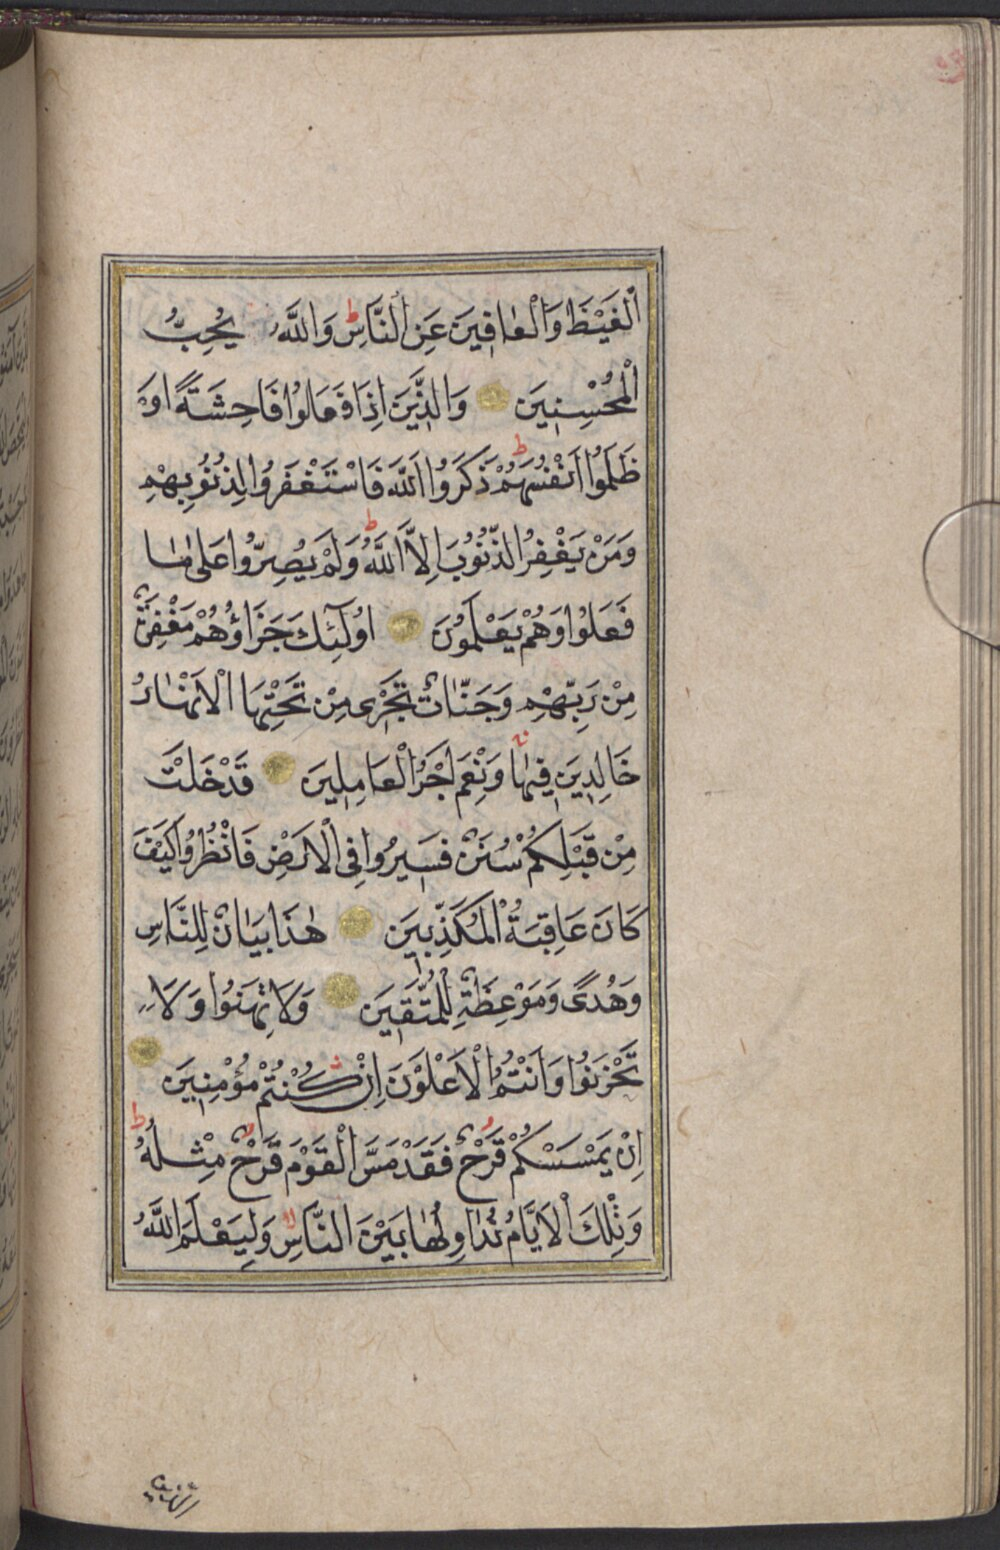 الْغَيْظَ وَالْعَافِينَ عَنِ النَّاسِ وَاللَّهُ يُحِبُّ
الْمُحْسِنِينَ وَالَّذِينَ اِذَا فَعَلُوا فَاحِشَةً اَوْ
ظَلَمُوا اَنْفُسَهُمْ ذَكَرُوا اللَّهَ فَاسْتَغْفَرُوا لِذُنُوبِهِمْ
وَمَنْ يَغْفِرُ الذُّنُوبَ اِلَّا اللَّهُ وَلَمْ يُصِرُّوا عَلٰى مَا
فَعَلُوا وَهُمْ يَعْلَمُونَ اُولٰٓئِكَ جَزَاؤُهُمْ مَغْفِرَةٌ
مِنْ رَبِّهِمْ وَجَنَّاتٌ تَجْرِى مِنْ تَحْتِهَا الْاَنْهَارُ
خَالِدِينَ فِيهَا وَنِعْمَ اَجْرُ الْعَامِلِينَ قَدْ خَلَتْ
مِنْ قَبْلِكُمْ سُنَنٌ فَسِيرُوا فِى الْاَرْضِ فَانْظُرُوا كَيْفَ
كَانَ عَاقِبَةُ الْمُكَذِّبِينَ هٰذَا بَيَانٌ لِلنَّاسِ
وَهُدًى وَمَوْعِظَةٌ لِلْمُتَّقِينَ وَلَا تَهِنُوا وَلَا
تَحْزَنُوا وَاَنْتُمُ الْاَعْلَوْنَ اِنْ كُنْتُمْ مُؤْمِنِينَ
اِنْ يَمْسَسْكُمْ قَرْحٌ فَقَدْ مَسَّ الْقَوْمَ قَرْحٌ مِثْلُهُ
وَتِلْكَ الْاَيَّامُ نُدَاوِلُهَا بَيْنَ النَّاسِ وَلِيَعْلَمَ اللَّهُ
الَّذِينَ